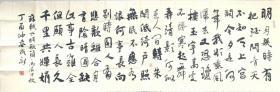 明月幾時有
把酒問青天
不知天上宮
闕今夕是何
年我欲乘風
歸去又恐瓊
樓玉宇高處
不勝寒起舞
弄清影何似
在人間轉朱
閣低綺戶照
無眠不應有
恨何事長向
別時圓人有
悲歡離合月
有陰晴圓缺
此事古難全
但願人長久
千里共嬋娟
蘇軾水調歌頭
丁酉